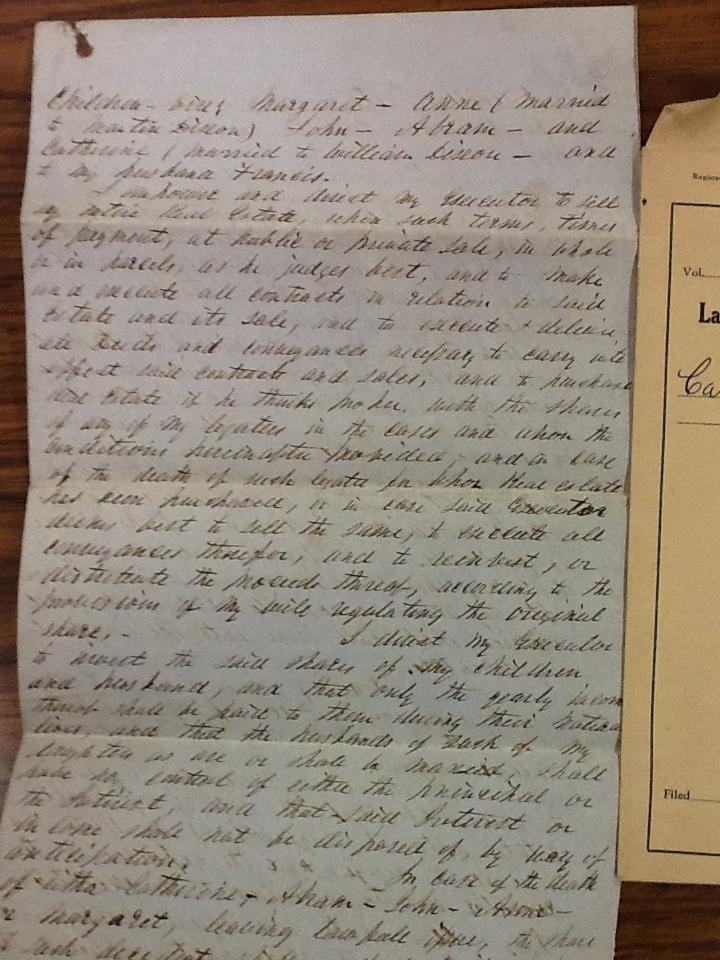 Children - viz; Margaret - Anne (married
to Martin Dixon) John - Abram - and
Catherine (married to William Dixon - and
to my husband Francis.
I empower and direct my Executor to sell
my entire Real Estate, upon such terms, times
of payment, at public or private sale, in whole
or in parcels, as he judges best, and to make
and execute all contracts in relation to said
Estate and its sale, and to execute + deliver,
all Deeds and conveyances necessary to carry into
effect said contracts and sales, and to purchase
real estate if he thinks proper, with the shares
of any of my legatees in the cases and upon the
conditions hereinafter provided, and in case
of the death of such legatee for whom Real estate
has been purchased, or in case said Executor
deems best to sell the same, to execute all
conveyances therefor, and to reinvest, or
distribute the proceeds thereof, according to the
provisions of my will regulating the original
share. - I direct my Executor
to invest the said shares of my children
and husband, and that only the yearly income
thereof shall be paid to them during their natural
lives, and that the husbands of such of my
daughters as are or shall be married, shall
have no control of either the principal or
the Interest, and that said Interest or
Income shall not be disposed of, by way of
anticipation. In case of the death
of either Catherine, - Abram - John - Anne -
or Margaret, leaving lawful issue, the share
of such decedent
Vol.
La
Ca
Filed